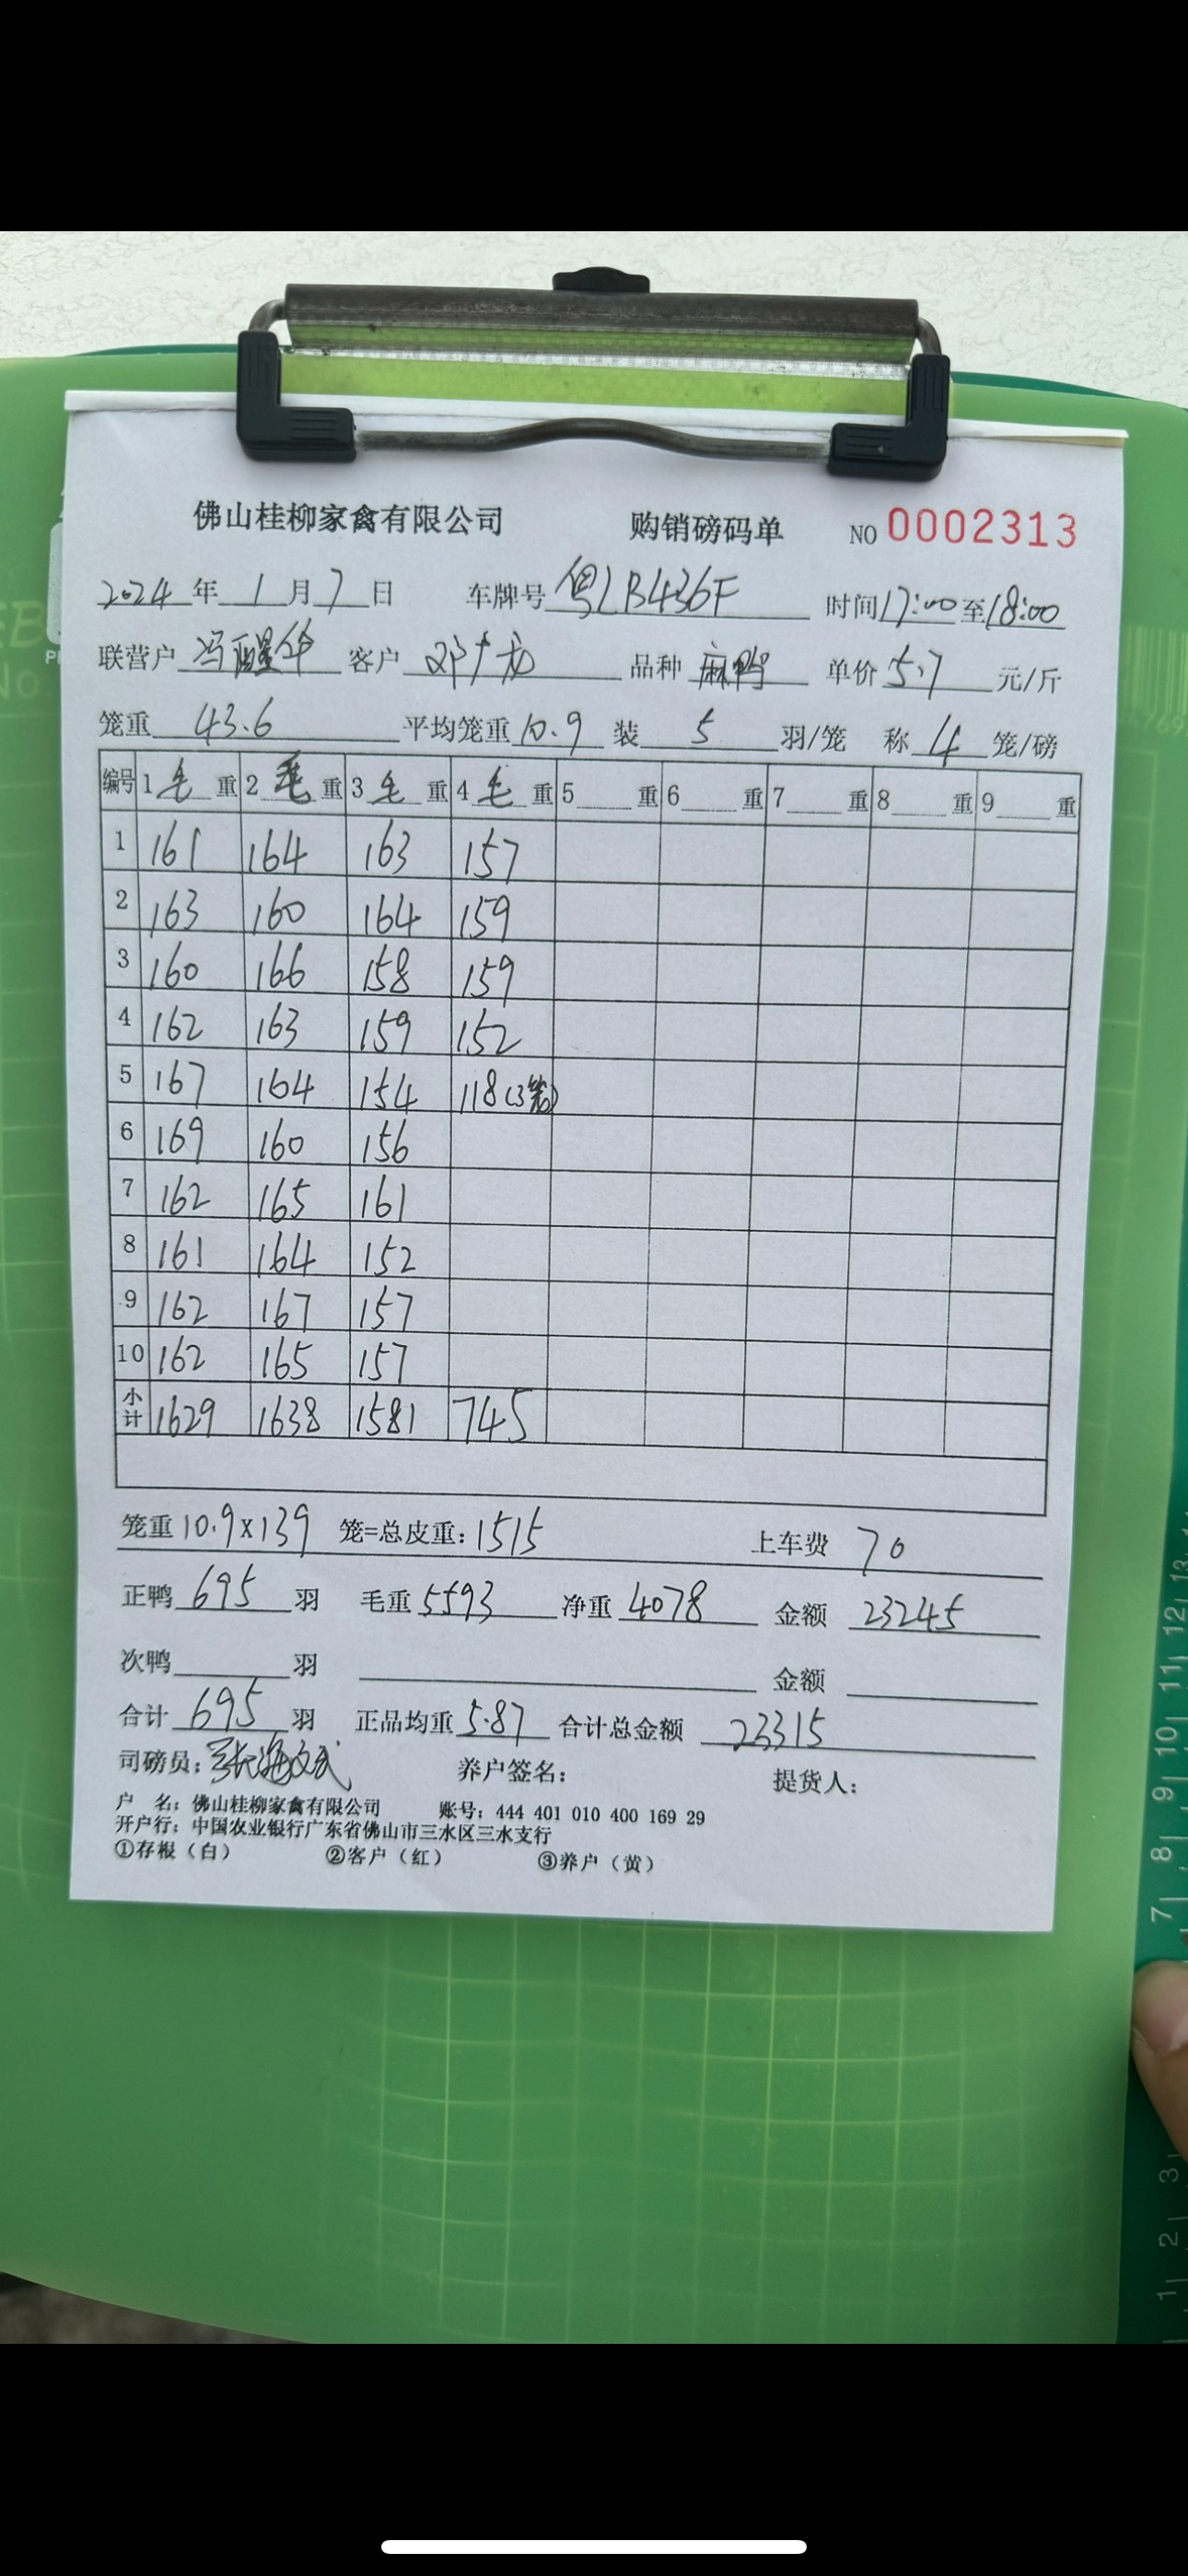 佛山桂柳家禽有限公司 购销磅码单 NO 0002313
2024年1月7日 车牌号 粤LB436F 时间17:00至18:00
联营户 冯醒华 客户 邓广龙 品种 麻鸭 单价5.7元/斤
笼重 43.6 平均笼重10.9 装 5 羽/笼 称 4 笼/磅
编号 1 毛 重 2 毛 重 3 毛 重 4 毛 重 5 重 6 重 7 重 8 重 9 重
1 161 164 163 157
2 163 160 164 159
3 160 166 158 159
4 162 163 159 152
5 167 164 154 118(3笼)
6 169 160 156
7 162 165 161
8 161 164 152
9 162 167 157
10 162 165 157
小计 1629 1638 1581 745
笼重10.9x139 笼=总皮重:1515 上车费 70
正鸭 695 羽 毛重 5593 净重 4078 金额 23245
次鸭 羽 金额
合计 695 羽 正品均重 5.87 合计总金额 23315
司磅员: 养户签名: 提货人:
户 名: 佛山桂柳家禽有限公司 账号: 444 401 010 400 169 29
开户行: 中国农业银行广东省佛山市三水区三水支行
①存根（白） ②客户（红） ③养户（黄）